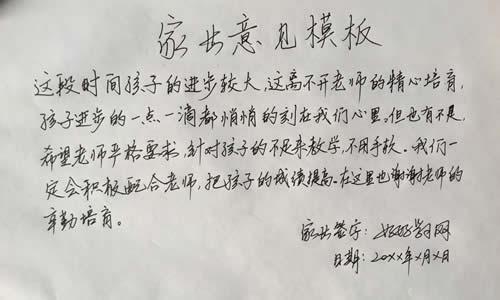 家长意见模板
这段时间孩子的进步较大,这离不开老师的精心培育,
孩子进步的一点一滴都悄悄的刻在我们心里。但也有不足,
希望老师严格要求,针对孩子的不足来教学,不用手软。我们一
定会积极配合老师,把孩子的成绩提高。在这里也谢谢老师的
辛勤培育。
家长签字:好好学习网
日期:20XX年X月X日